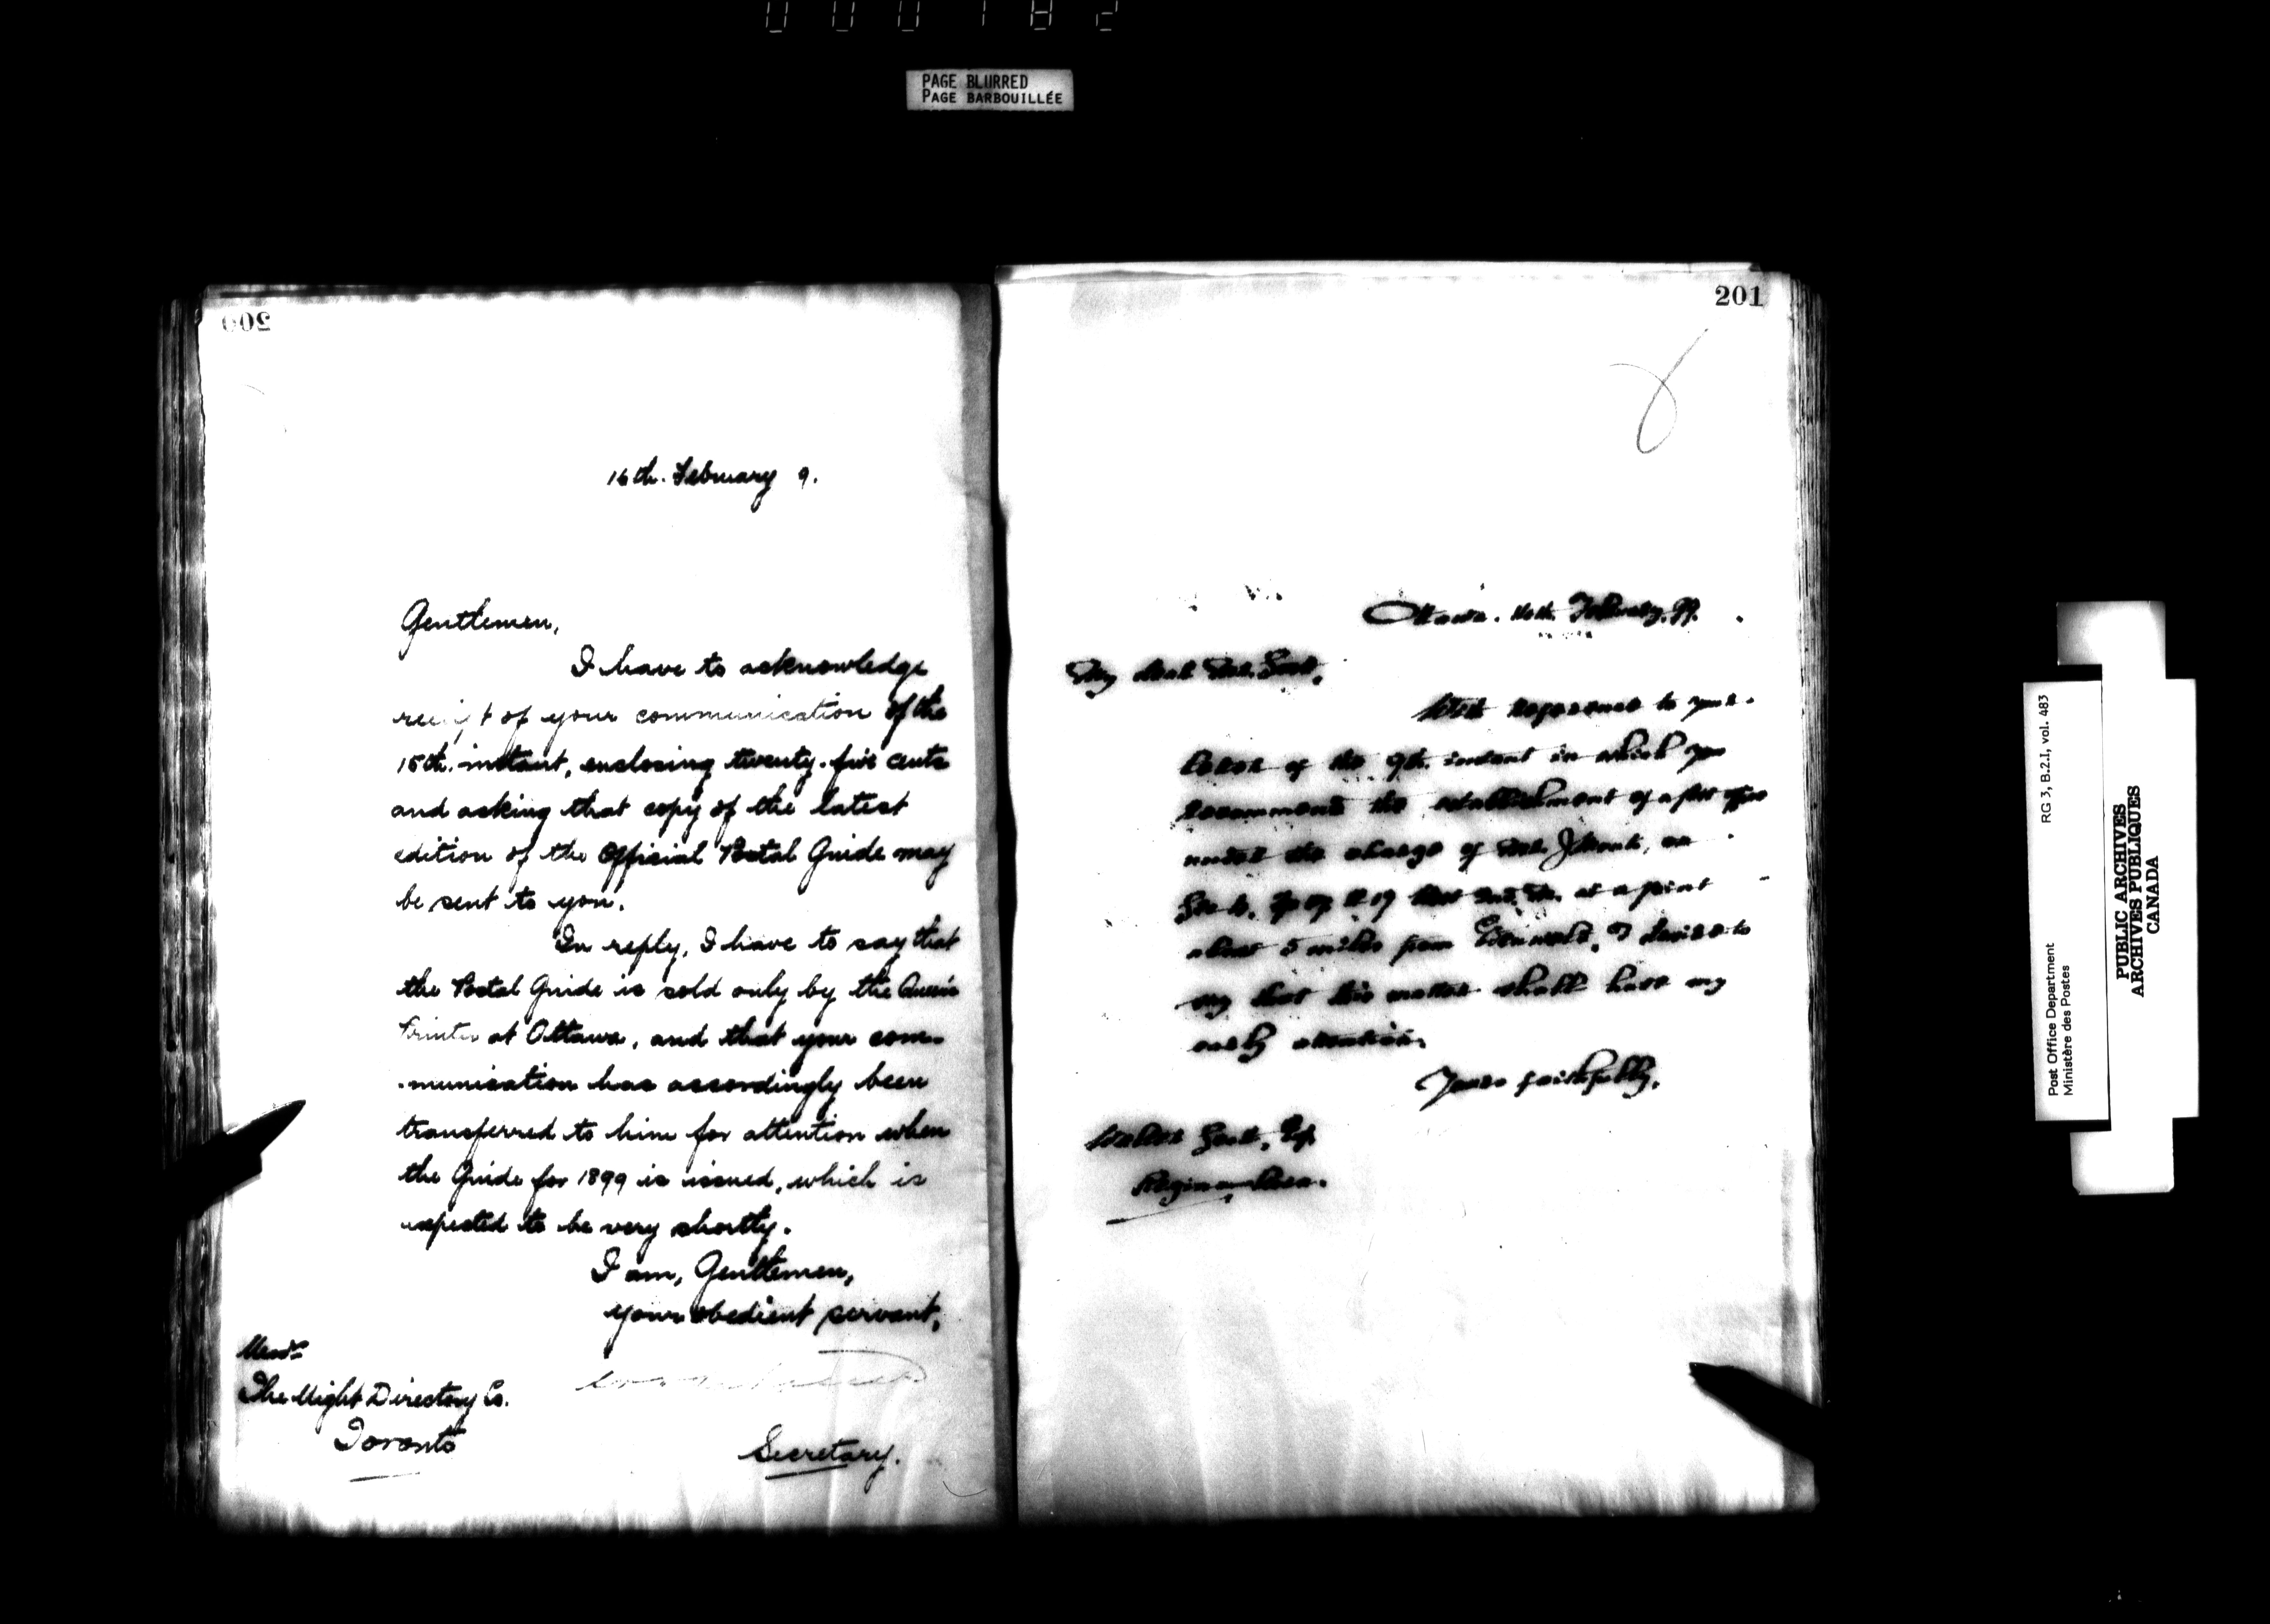 000182
PAGE BLURRED
PAGE BARBOUILLÉE
200
16th. February 9.
Gentlemen,
I have to acknowledge
receipt of your communication of the
15th. instant, enclosing twenty-five cents
and asking that copy of the latest
edition of the Official Postal Guide may
be sent to you.
In reply, I have to say that
the Postal Guide is sold only by the Queen's
Printer at Ottawa, and that your com-
-munication has accordingly been
transferred to him for attention when
the Guide for 1899 is issued, which is
expected to be very shortly.
I am, Gentlemen,
your obedient servant,
Messrs
The Might Directory Co.
Toronto
Secretary.
201
Ottawa. 16th. February, 99.
My dear Mr. Scott,
With reference to your
letter of the 9th. instant in which you
recommend the establishment of a post office
under the charge of Mr. J. , on
Sec. 10. Tp 17 R 19 West 2nd. M. at a point
about 5 miles from , I desire to
say that this matter shall have my
early attention.
Yours faithfully,
Walter Scott, Esq.
Regina, Assa.
RG 3, B.2.1, vol. 483
Post Office Department
Ministère des Postes
PUBLIC ARCHIVES
ARCHIVES PUBLIQUES
CANADA